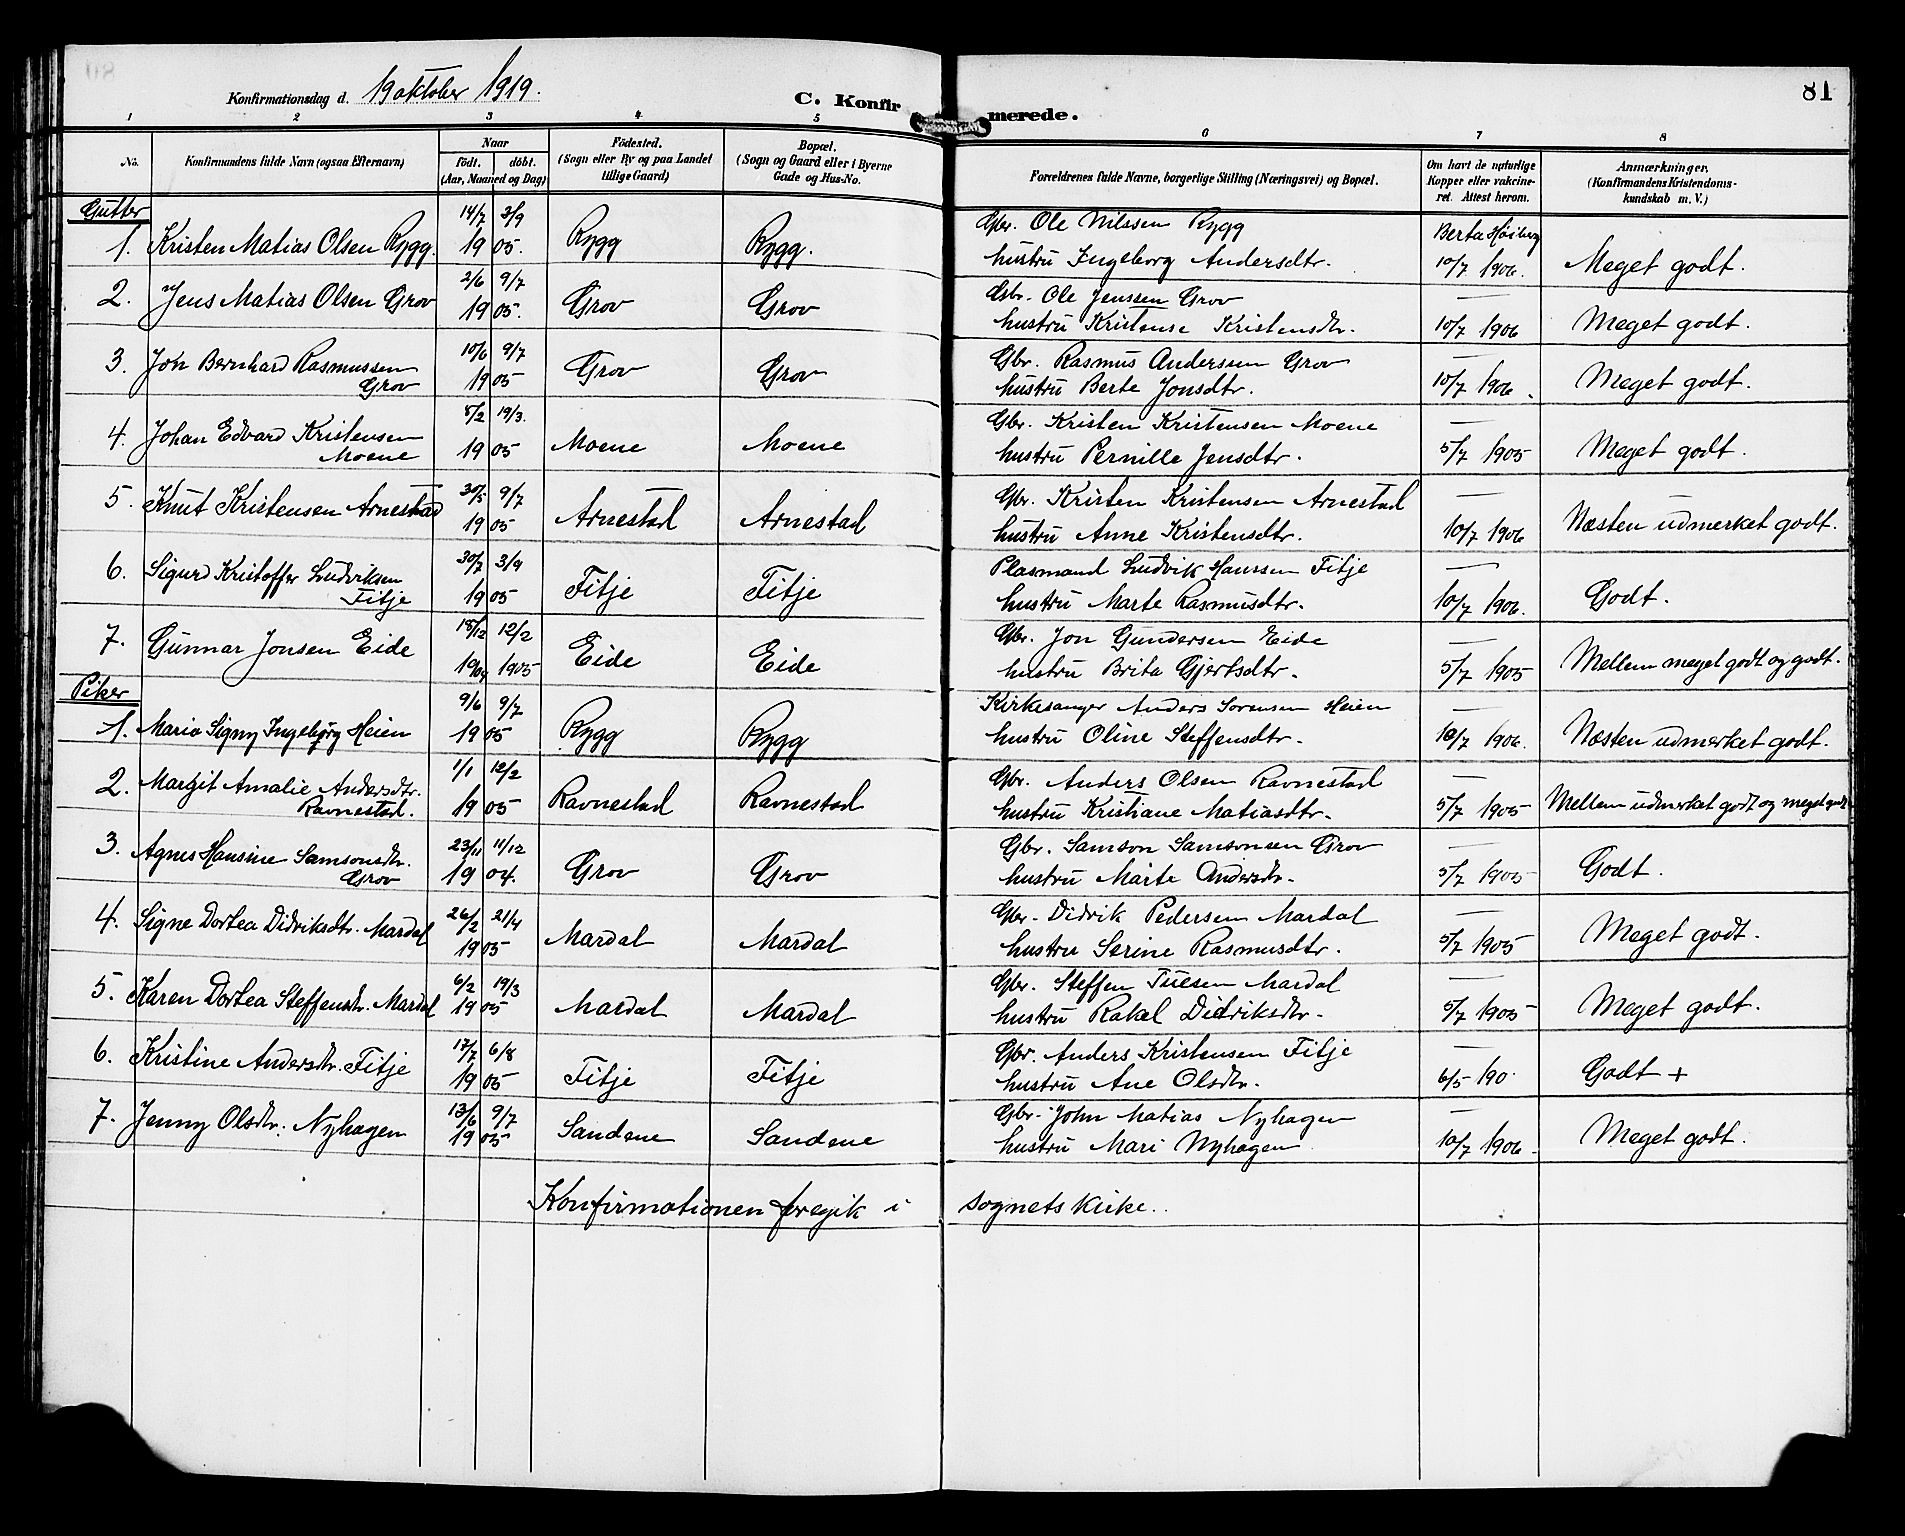 81
Konfirmationsdag d. 19 oktober 1919.
C. Konfirmerede.
1 2 3 4 5 6 7 8
No.
Konfirmandens fulde Navn (ogsaa Efternavn)
Naar
födt. döbt.
(Aar, Maaned og Dag)
Födested.
(Sogn eller By og paa Landet
tillige Gaard)
Bopæl.
(Sogn og Gaard eller i Byerne
Gade og Hus-No.
Forældrenes fulde Navne, borgerlige Stilling (Næringsvei) og Bopæl.
Om havt de naturlige
Kopper eller vakcine-
ret. Attest herom.
Anmærkninger,
(Konfirmandens Kristendoms-
kundskab m. V.)
Gutter
14/7 3/9 Gbr. Ole Nilssen Rygg Berta Höiberg
1. Kristen Matias Olsen Rygg. 1905. Rygg Rygg. hustru Ingeborg Andersdtr. 10/7 1906. Meget godt.
2/6 9/7 Gbr. Ole Jenssen Grov —
2. Jens Matias Olsen Grov 1905. Grov Grov hustru Kristense Kristensdtr. 10/7 1906 Meget godt.
3. Jon Bernhard Rasmussen 10/6 9/7 Gbr. Rasmus Anderssen Grov —
Grov 1905 Grov Grov hustru Berte Jonsdtr. 10/7 1906. Meget godt.
4. Johan Edvard Kristensen 5/2 19/3. Gbr. Kristen Kristensen Moene —
Moene 1905 Moene Moene hustru Pernille Jensdtr. 5/7 1905 Meget godt.
5. Knut Kristensen Arnestad 30/5 9/7 Gbr. Kristen Kristensen Arnestad —
1905 Arnestad Arnestad hustru Anne Kristensdtr. 10/7 1906 Næsten udmerket godt.
6. Sigurd Kristoffer Ludviksen 30/7 3/9 Plasmand Ludvik Hanssen Fitje —
Fitje 1905 Fitje Fitje hustru Marte Rasmusdtr. 10/7 1906. Godt.
7. Gunnar Jonsen Eide 18/12 12/2 Gbr. Jon Gundersen Eide —
1904 1905 Eide Eide hustru Brita Gjertsdtr. 5/7 1905 Mellem meget godt og godt.
Piker
9/6 9/7 Kirkesanger Anders Sorensen Heien —
1. Marie Signy Ingebjørg Heien 1905 Rygg Rygg hustru Oline Steffensdtr. 10/7 1906. Næsten udmerket godt.
2. Margit Amalie Andersdtr. 1/1 12/2 Gbr. Anders Olsen Ravnestad —
Ravnestad. 1905 Ravnestad Ravnestad hustru Kristiane Matiasdtr. 5/7 1905 Mellem udmerket godt og meget godt
3. Agnes Hansine Samsonsdtr. 23/11 11/12 Gbr. Samson Samsonsen Grov —
Grov 1904. Grov Grov hustru Marte Andersdtr. 5/7 1905 Godt.
4. Signe Dortea Didriksdtr. Mardal 26/2 21/4 Gbr. Didrik Pedersen Mardal —
1905 Mardal Mardal hustru Serine Rasmusdtr. 5/7 1905 Meget godt.
5. Karen Dortea Steffensdtr. Mardal 6/2 19/3 Gbr. Steffen Tuesen Mardal —
1905 Mardal Mardal hustru Rakel Didriksdtr. 5/7 1905 Meget godt.
6. Kristine Andersdtr. Fitje 17/7 6/8 Gbr. Anders Kristensen Fitje —
1905 Fitje Fitje hustru Ane Olsdtr. 6/5 190. Godt +
7. Jenny Olsdtr. Nyhagen 13/6 9/7 Gbr. John Matias Nyhagen —
1905 Sandene Sandene hustru Mari Nyhagen 10/7 1906. Meget godt.
Konfirmationen foregik i sognets kirke.